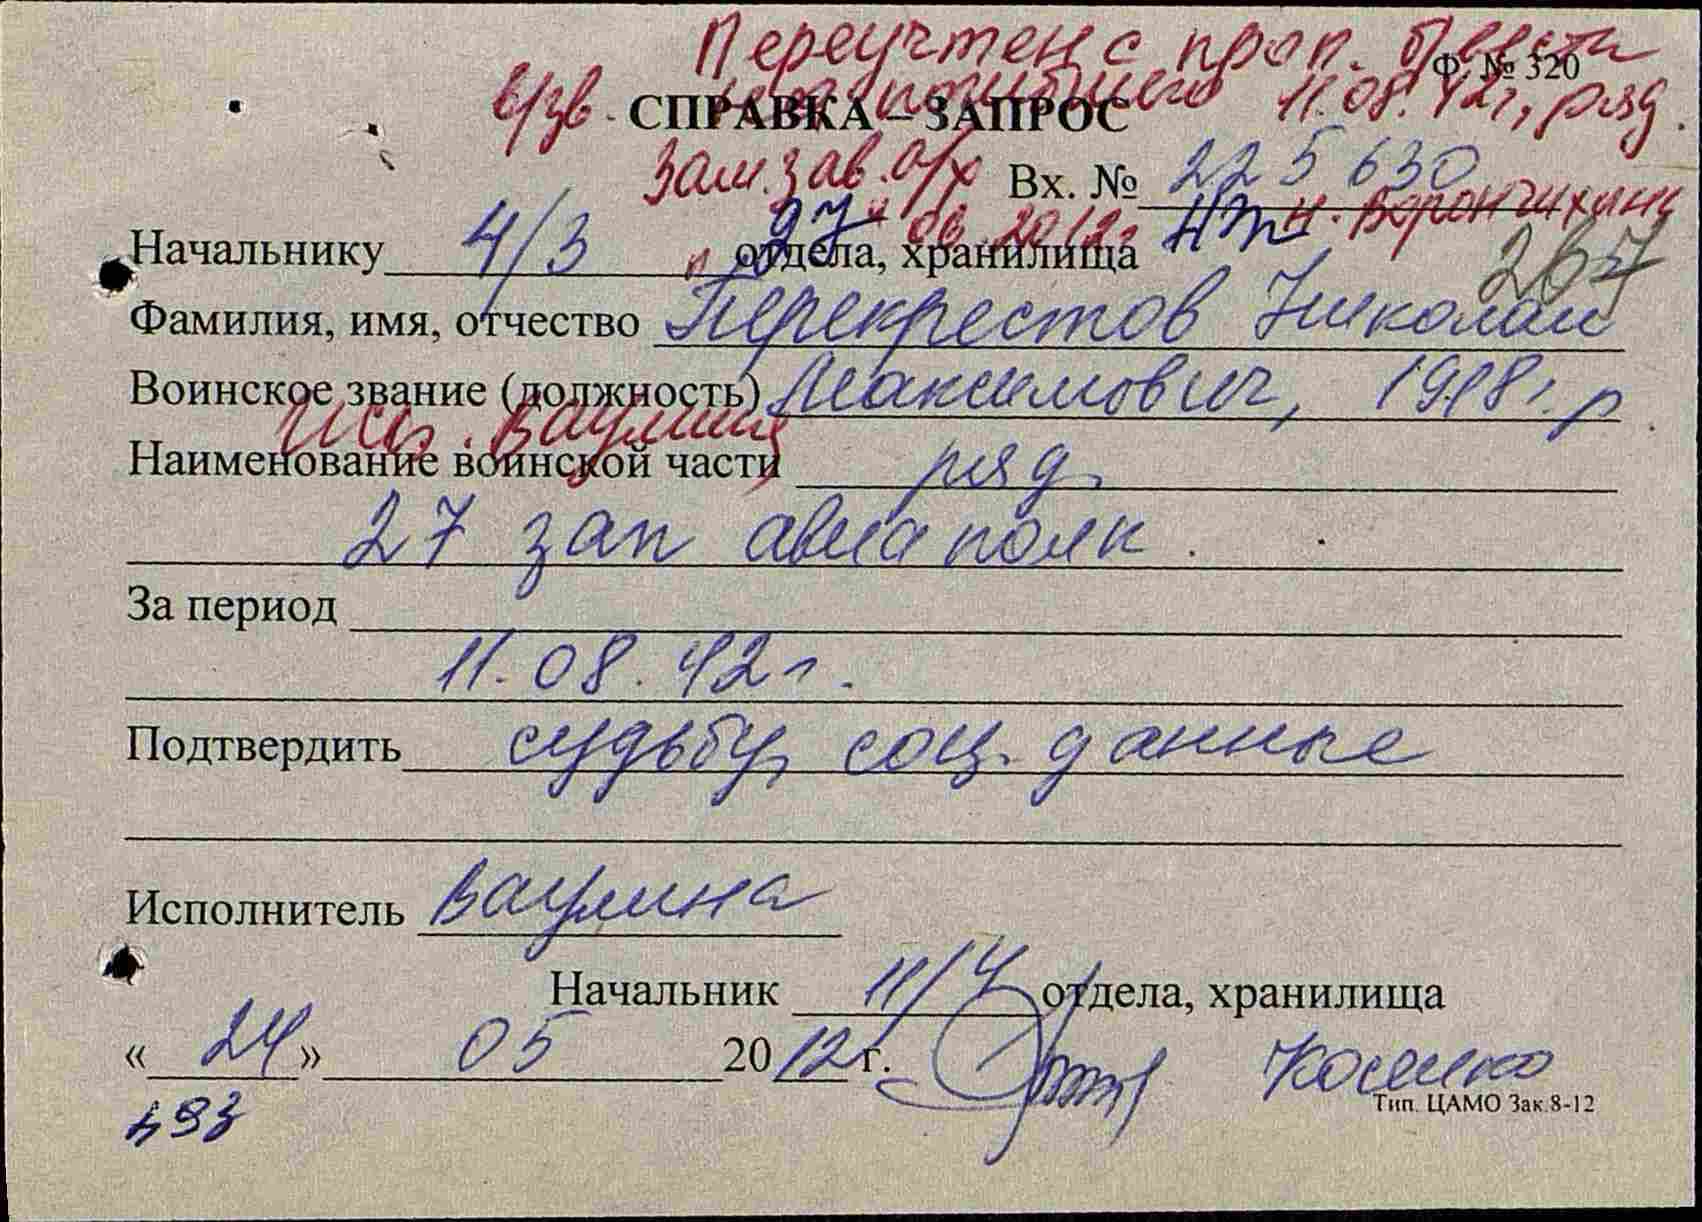 Переучтен с проп. б/вести
Ф. № 320
погибшего 11.08.42г, ряд.
СПРАВКА – ЗАПРОС
Зам. зав. а/х
Вх. № 225630
Н. Ворончихина
"27" 06 2012г
Начальнику 4/3 отдела, хранилища
Фамилия, имя, отчество Перекрестов Николай
Воинское звание (должность) Максимович, 1918г.р
Исп. Ваулина
Наименование воинской части ряд.
27 зап авиаполк.
За период
11.08.42г.
Подтвердить судьбу, соц. данные
Исполнитель Ваулина
Начальник 11/4 отдела, хранилища
«24» 05 2012г.
Косенко
493
Тип. ЦАМО Зак.8-12